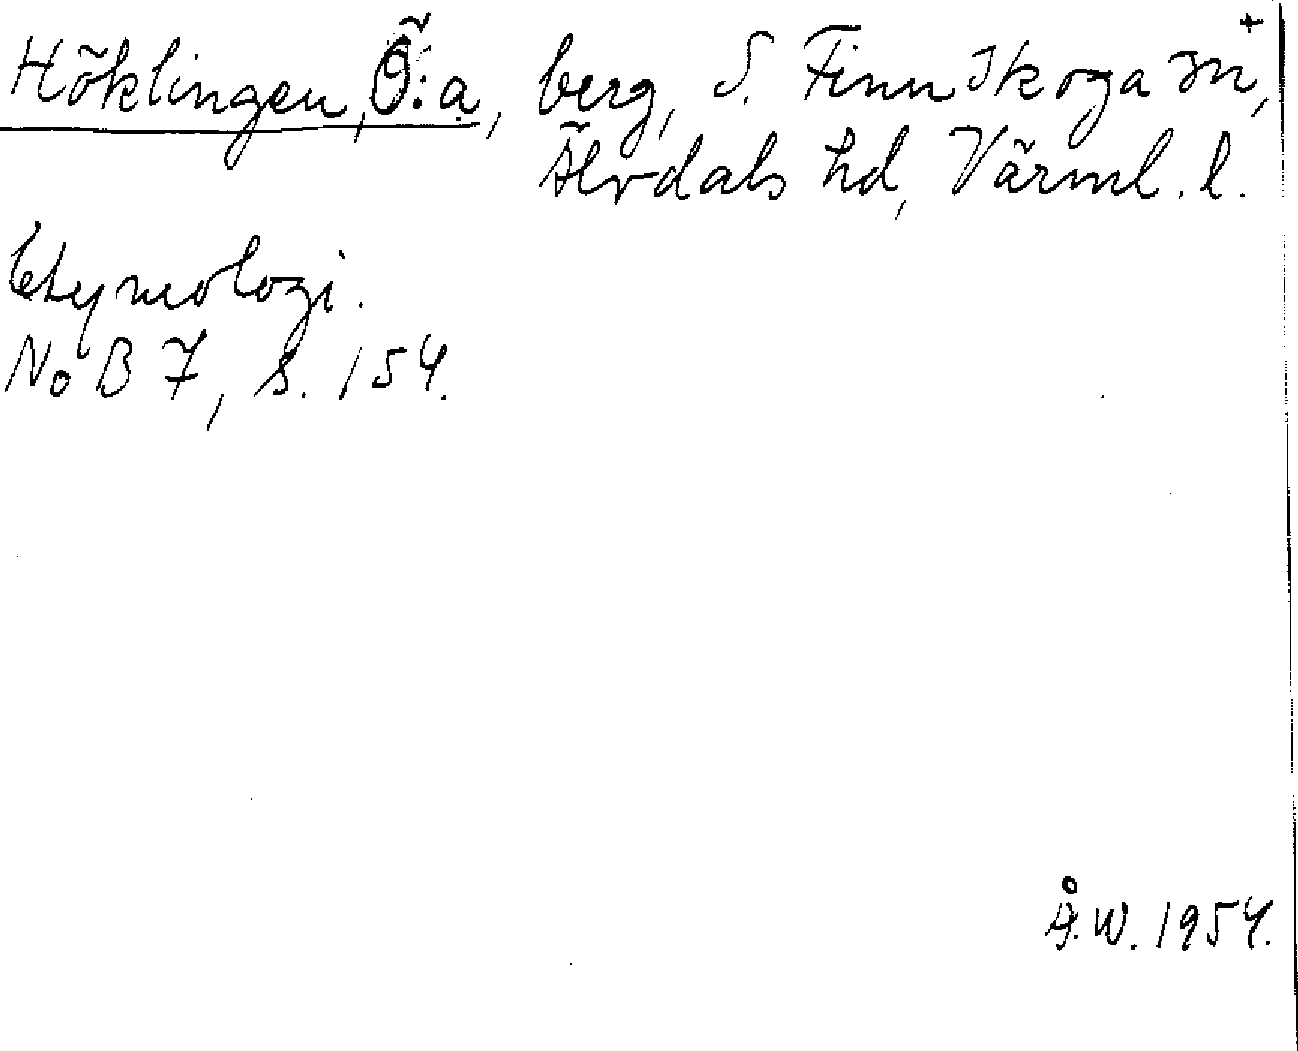 Höklingen, Ö:a, berg, S. Finnskoga sn+,
Älvdals hd, Värml. l.
Etymologi.
NoB 7, s. 154.
Å.W. 1954.